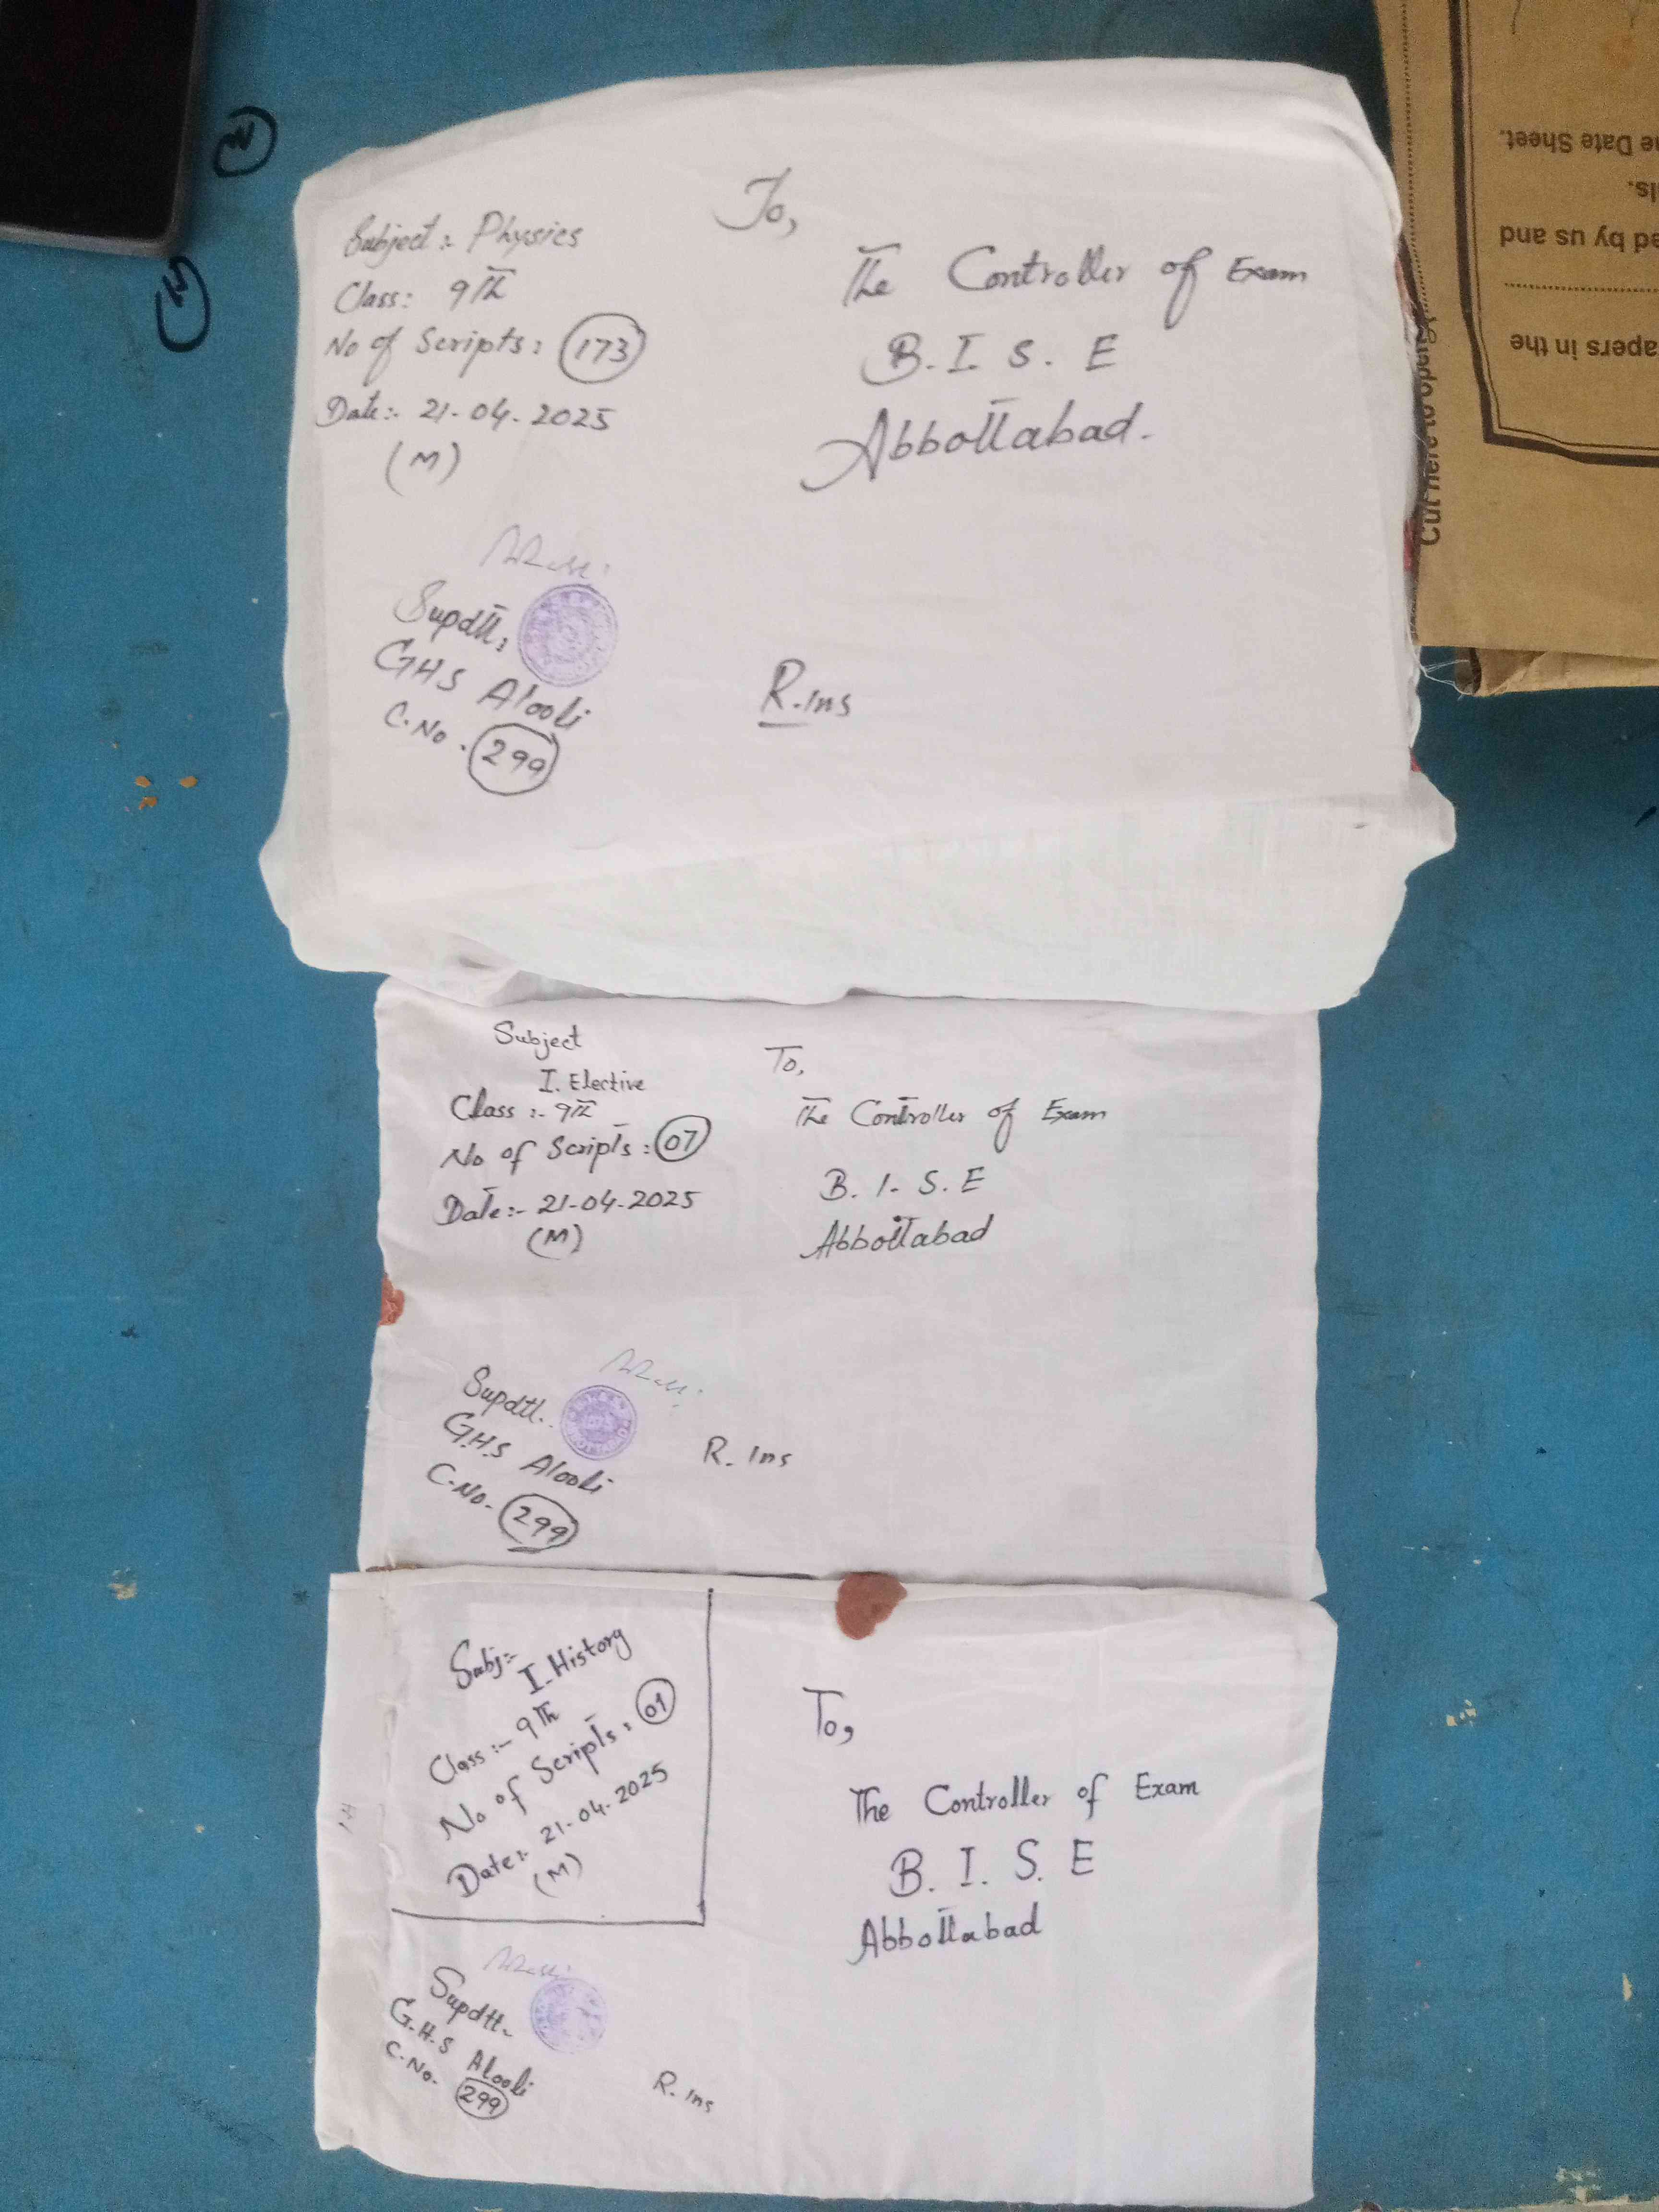 Subject :- Physics
Class: 9th
No of Scripts: 173
Date:- 21-04-2025
(M)
To,
The Controller of Exam
B. I. S. E
Abbottabad.
Supdtt:
GHS Alooli
C.No. 299
R.Ins
Subject
I. Elective
Class :- 9th
No of Scripts: 07
Date:- 21-04-2025
(M)
To,
The Controller of Exam
B. I. S. E
Abbottabad
Supdtt.
G.H.S Alooli
C.No. 299
R. Ins
Subj:-
I. History
Class :- 9th
No of Scripts: 01
Date:- 21-04-2025
(M)
To,
The Controller of Exam
B. I. S. E
Abbottabad
Supdtt.
G.H.S Alooli
C.No. 299
R. Ins
Date Sheet.
by us and
in the
Cut here to open